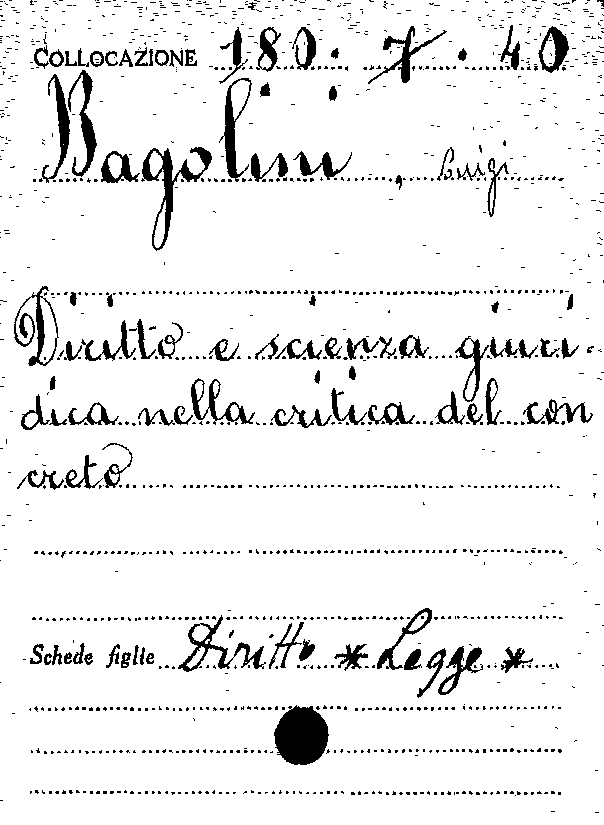 COLLOCAZIONE 180. 7. 40
Bagolini, Luigi
Diritto e scienza giuri-
dica nella critica del con
creto
Schede figlie Diritto * Legge *